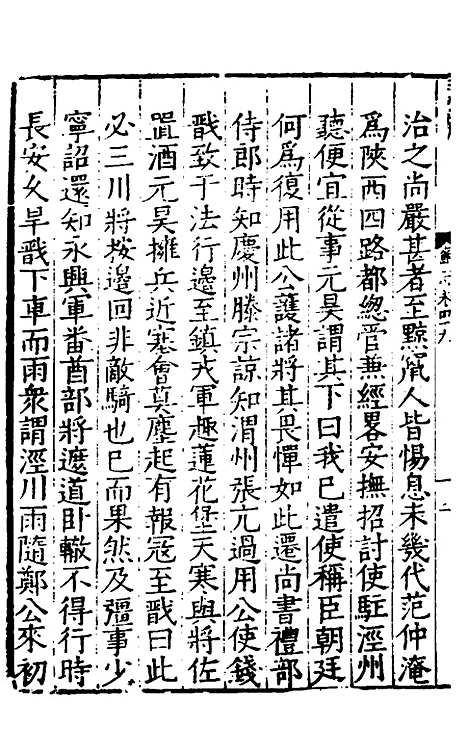 治之尚嚴甚者至黥竄人皆惕息未幾代范仲淹
爲陜西四路都緫管兼經畧安撫招討使駐涇州
聽便宜從事元昊謂其下曰我已遣使稱臣朝廷
何爲復用此公護諸將其畏憚如此遷尚書禮部
侍郎時知慶州滕宗諒知渭州張亢過用公使錢
戩致于法行邊至鎮戎軍趣蓮花堡天寒與將佐
置酒元昊擁兵近塞會莫塵起有報冦至戩曰此
必三川將按邊回非敵騎也已而果然及彊事少
寧詔還知永興軍番酋部將遮道卧轍不得行時
長安久旱戩下車而雨衆謂涇川雨隨鄭公來初